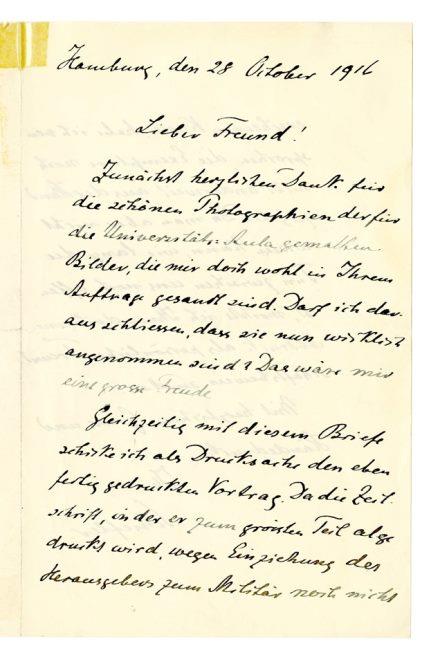 Hamburg, den 28 October 1916
Lieber Freund!
Zunächst herzlichen Dank für
die schönen Photographien der für
die Universitäts-Aula gemalten
Bilder, die mir doch wohl in Ihrem
Auftrage gesandt sind. Darf ich dar-
aus schliessen, dass sie nun wirklich
angenommen sind? Das wäre mir
eine grosse Freude
Gleichzeitig mit diesem Briefe
schicke ich als Drucksache den eben
fertig gedruckten Vortrag. Da die Zeit-
schrift, in der er zum grössten Teil abge
druckt wird, wegen Einziehung des
Herausgebers zum Militär noch nicht